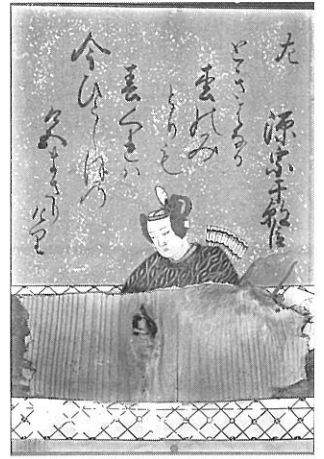 左
源宗于朝臣
ときはなる
松のみ
とりも
春くれハ
今ひとしほの
色まさりけり